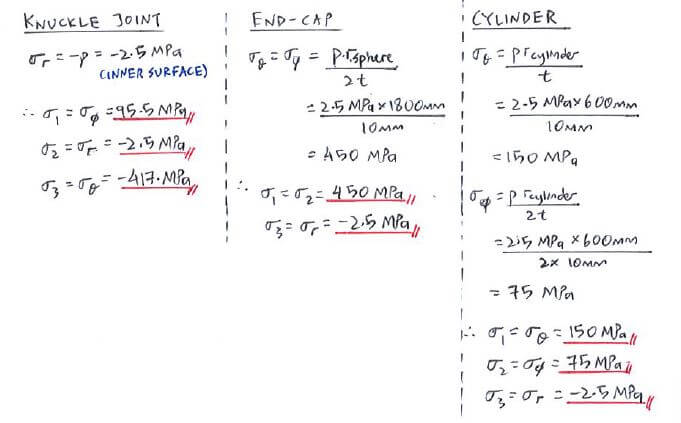 KNUCKLE JOINT
σr = -p = -2.5 MPa
(INNER SURFACE)
∴ σ1 = σφ = 95.5 MPa
σ2 = σr = -2.5 MPa
σ3 = σθ = -417. MPa
END-CAP
σθ = σφ = p.rsphere
2t
= 2.5 MPa × 1800mm
10mm
= 450 MPa
∴ σ1 = σ2 = 450 MPa
σ3 = σr = -2.5 MPa
CYLINDER
σθ = p rcylinder
t
= 2.5 MPa × 600mm
10mm
= 150 MPa
σφ = p rcylinder
2t
= 2.5 MPa × 600mm
2 × 10mm
= 75 MPa
∴ σ1 = σθ = 150 MPa
σ2 = σφ = 75 MPa
σ3 = σr = -2.5 MPa